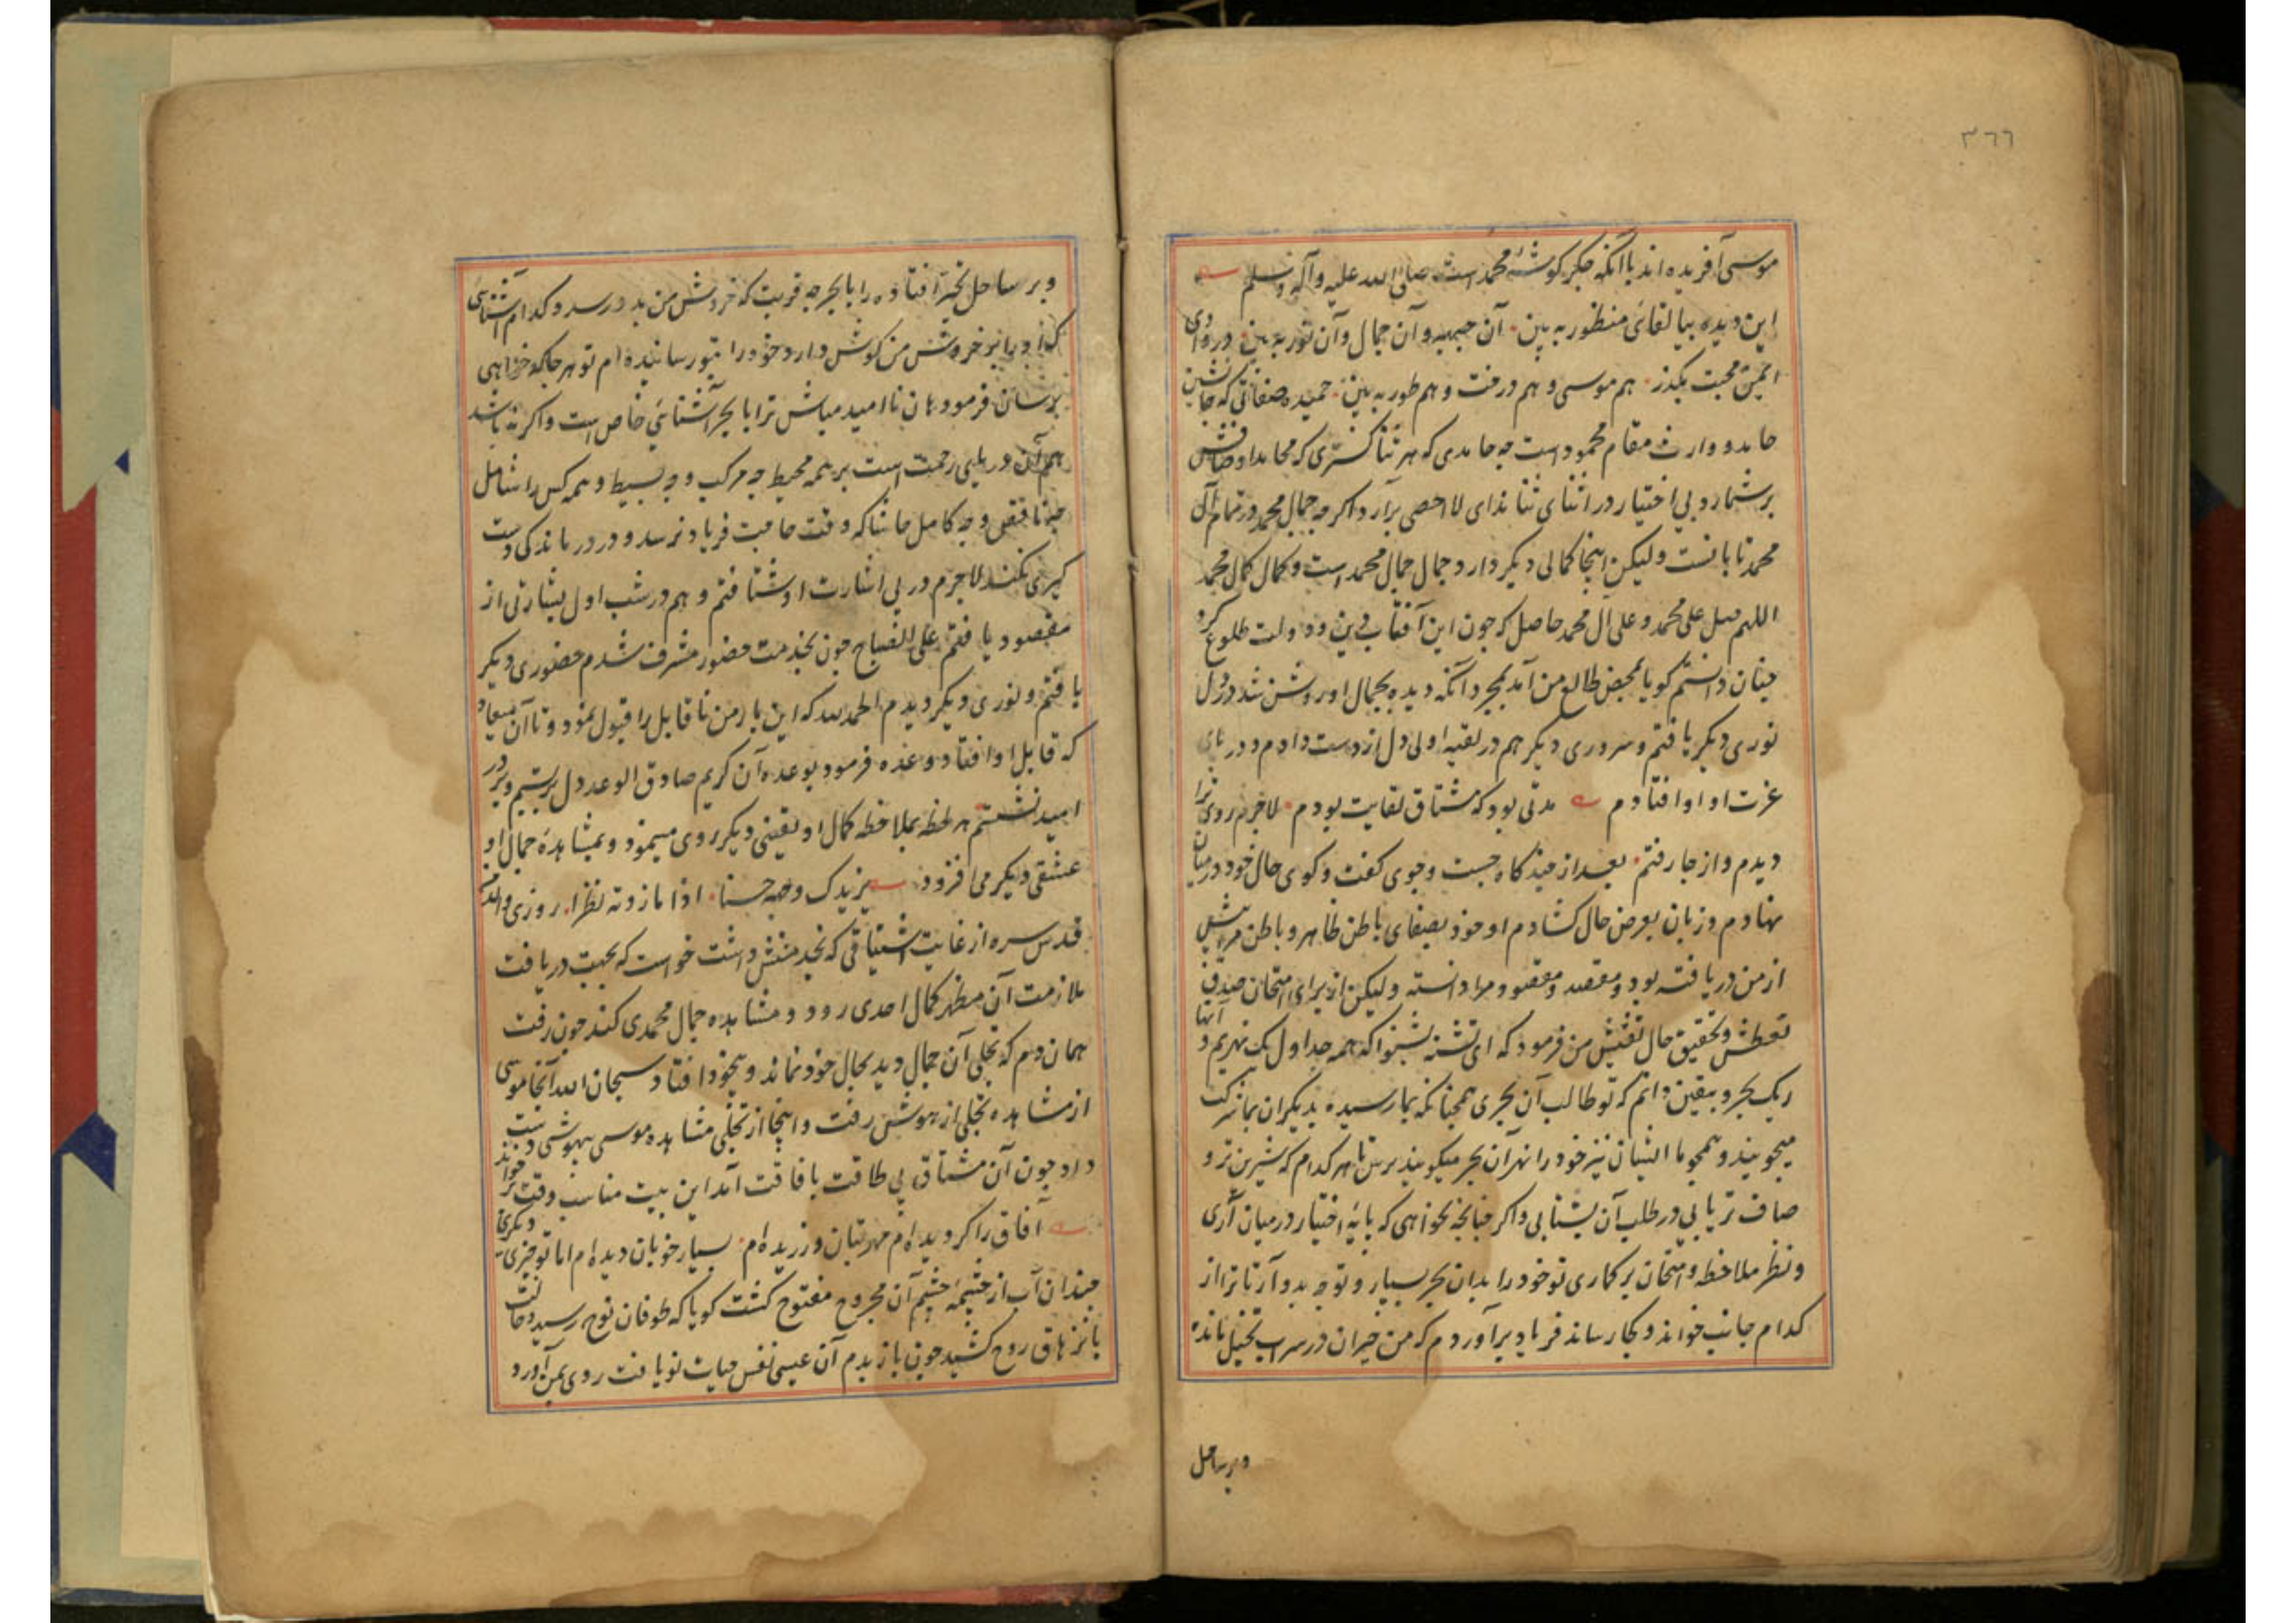 ٣٦٦
موسی آفریده اند با آنکه جکر کوشهٔ محمد است صلی الله علیه وآله وسلم
این دیده بیا لقائی منظور به بین آن جبهه و آن جمال و آن نور به بین در وادی
ایمن محبت بکذر هم موسی و هم درخت و هم طور به بین حمیده صفاتی که جانشین
حامد و وارث مقام محمود است چه حامدی که هر ثنا کستری که محامد اوصافش
بر شمارد بی اختیار در اثنای ثنا ندای لا احصی برآرد اکر چه جمال محمد در تمام آل
محمد تابانست ولیکن اینجا کمالی دیکر دارد و جمال جمال محمد است و کمال کمال محمد
اللهم صل علی محمد و علی آل محمد حاصل که چون این آفتاب دین و دولت طلوع کرد
چنان دانستم کویا بمحض طالع من آمد بمجرد آنکه دیده بجمال او روشن شد در دل
نوری دیکر یافتم و سروری دیکر هم در لقیه اولی دل از دست دادم و در پای
عزت او اوافتادم مدتی بود که مشتاق لقایت بودم لاجرم روی ترا
دیدم و از جا رفتم بعد از چند کاه جست و جوی کفت و کوی حال خود در میان
نهادم و زبان بعرض حال کشادم او خود بصفای باطن ظاهر و باطن مرا پیش
از من دریافته بود و مقصد و مقصود مرا دانسته ولیکن از برای امتحان صدق
تعطش و تحقیق حال تفتیش من فرمود که ای تشنه بشنو اکه همه جداول یک نهریم و آنها
ریک بحر و بیقین دانم که تو طالب آن بحری همچنانکه بما رسیده بدیکران بما شرکت
میجویند و همچو ما ایشان نیز خود را نهر آن بحر میکویند برس تا هر کدام که شیرین تر و
صاف تر یابی در طلب آن بشتابی و اکر چنانچه نخواهی که پایهٔ اختیار در میان آری
و نظر ملاحظه و امتحان بر کماری تو خود را بدان بحر بسپار و توجه بدو آر تا ترا از
کدام جانب خواند و بکجا رساند فریاد برآوردم که من حیران در سراب تخیل مانده
و بر ساحل
و بر ساحل تحیر افتاده را با بحر چه قربت که خروش من بدو رسد و کدام آشنائی
که او را بر خروش من کوش دارد خود را بتو رسانیده ام تو هر جا که خواهی
برسان فرمود هان نا امید مباش ترا با بحر آشنائی خاص است و اکر نه باشد
هم آن دریای رحمت است بر همه محیط چه مرکب و چه بسیط و همه کس را شامل
چه ناقص و چه کامل حاشا که وقت حاجت فریاد نرسد و در درماندکی دست
کیری نکند لاجرم در پی اشارت او شتافتم و هم در شب اول بشارتی از
مقصود یافتم علی الصباح چون بخدمت حضور مشرف شدم حضوری دیکر
یافتم و نوری دیکر دیدم الحمد لله که این بار من نا قابل را قبول نمود و تا آن میعاد
که قابل او افتاد وعده فرمود بوعده آن کریم صادق الوعد دل بستیم و بر در
امید نشستم هر لحظه بملاحظه کمال او یقینی دیکر روی مینمود و بمشاهدهٔ جمال او
عشقی دیکر می افزود یزیدک وجهه حسنا اذا ما زدته نظرا روزی والد
قدس سره از غایت اشتیاقی که بخدمتش داشت خواست که بجهت دریافت
ملازمت آن مظهر کمال احدی رود و مشاهده جمال محمدی کند چون رفت
همان دم که تجلی آن جمال دید بحال خود نماند و بیخود افتاد سبحان الله آنجا موسی
از مشاهده تجلی از هوش رفت و اینجا از تجلی مشاهده موسی بیهوشی دست
داد چون آن مشتاق بی طاقت بافاقت آمد این بیت مناسب وقت بر خواند
آفاق را کردیده ام مهر بتان ورزیده ام بسیار خوبان دیده ام اما تو چیزی دیکری
چندان آب از چشمهٔ چشم آن مجروح مفتوح کشت کویا که طوفان نوح رسید و حالت
بانزهاق روح کشید چون باز بدم آن عیسی نفس حیات نو یافت روی بمن آورد